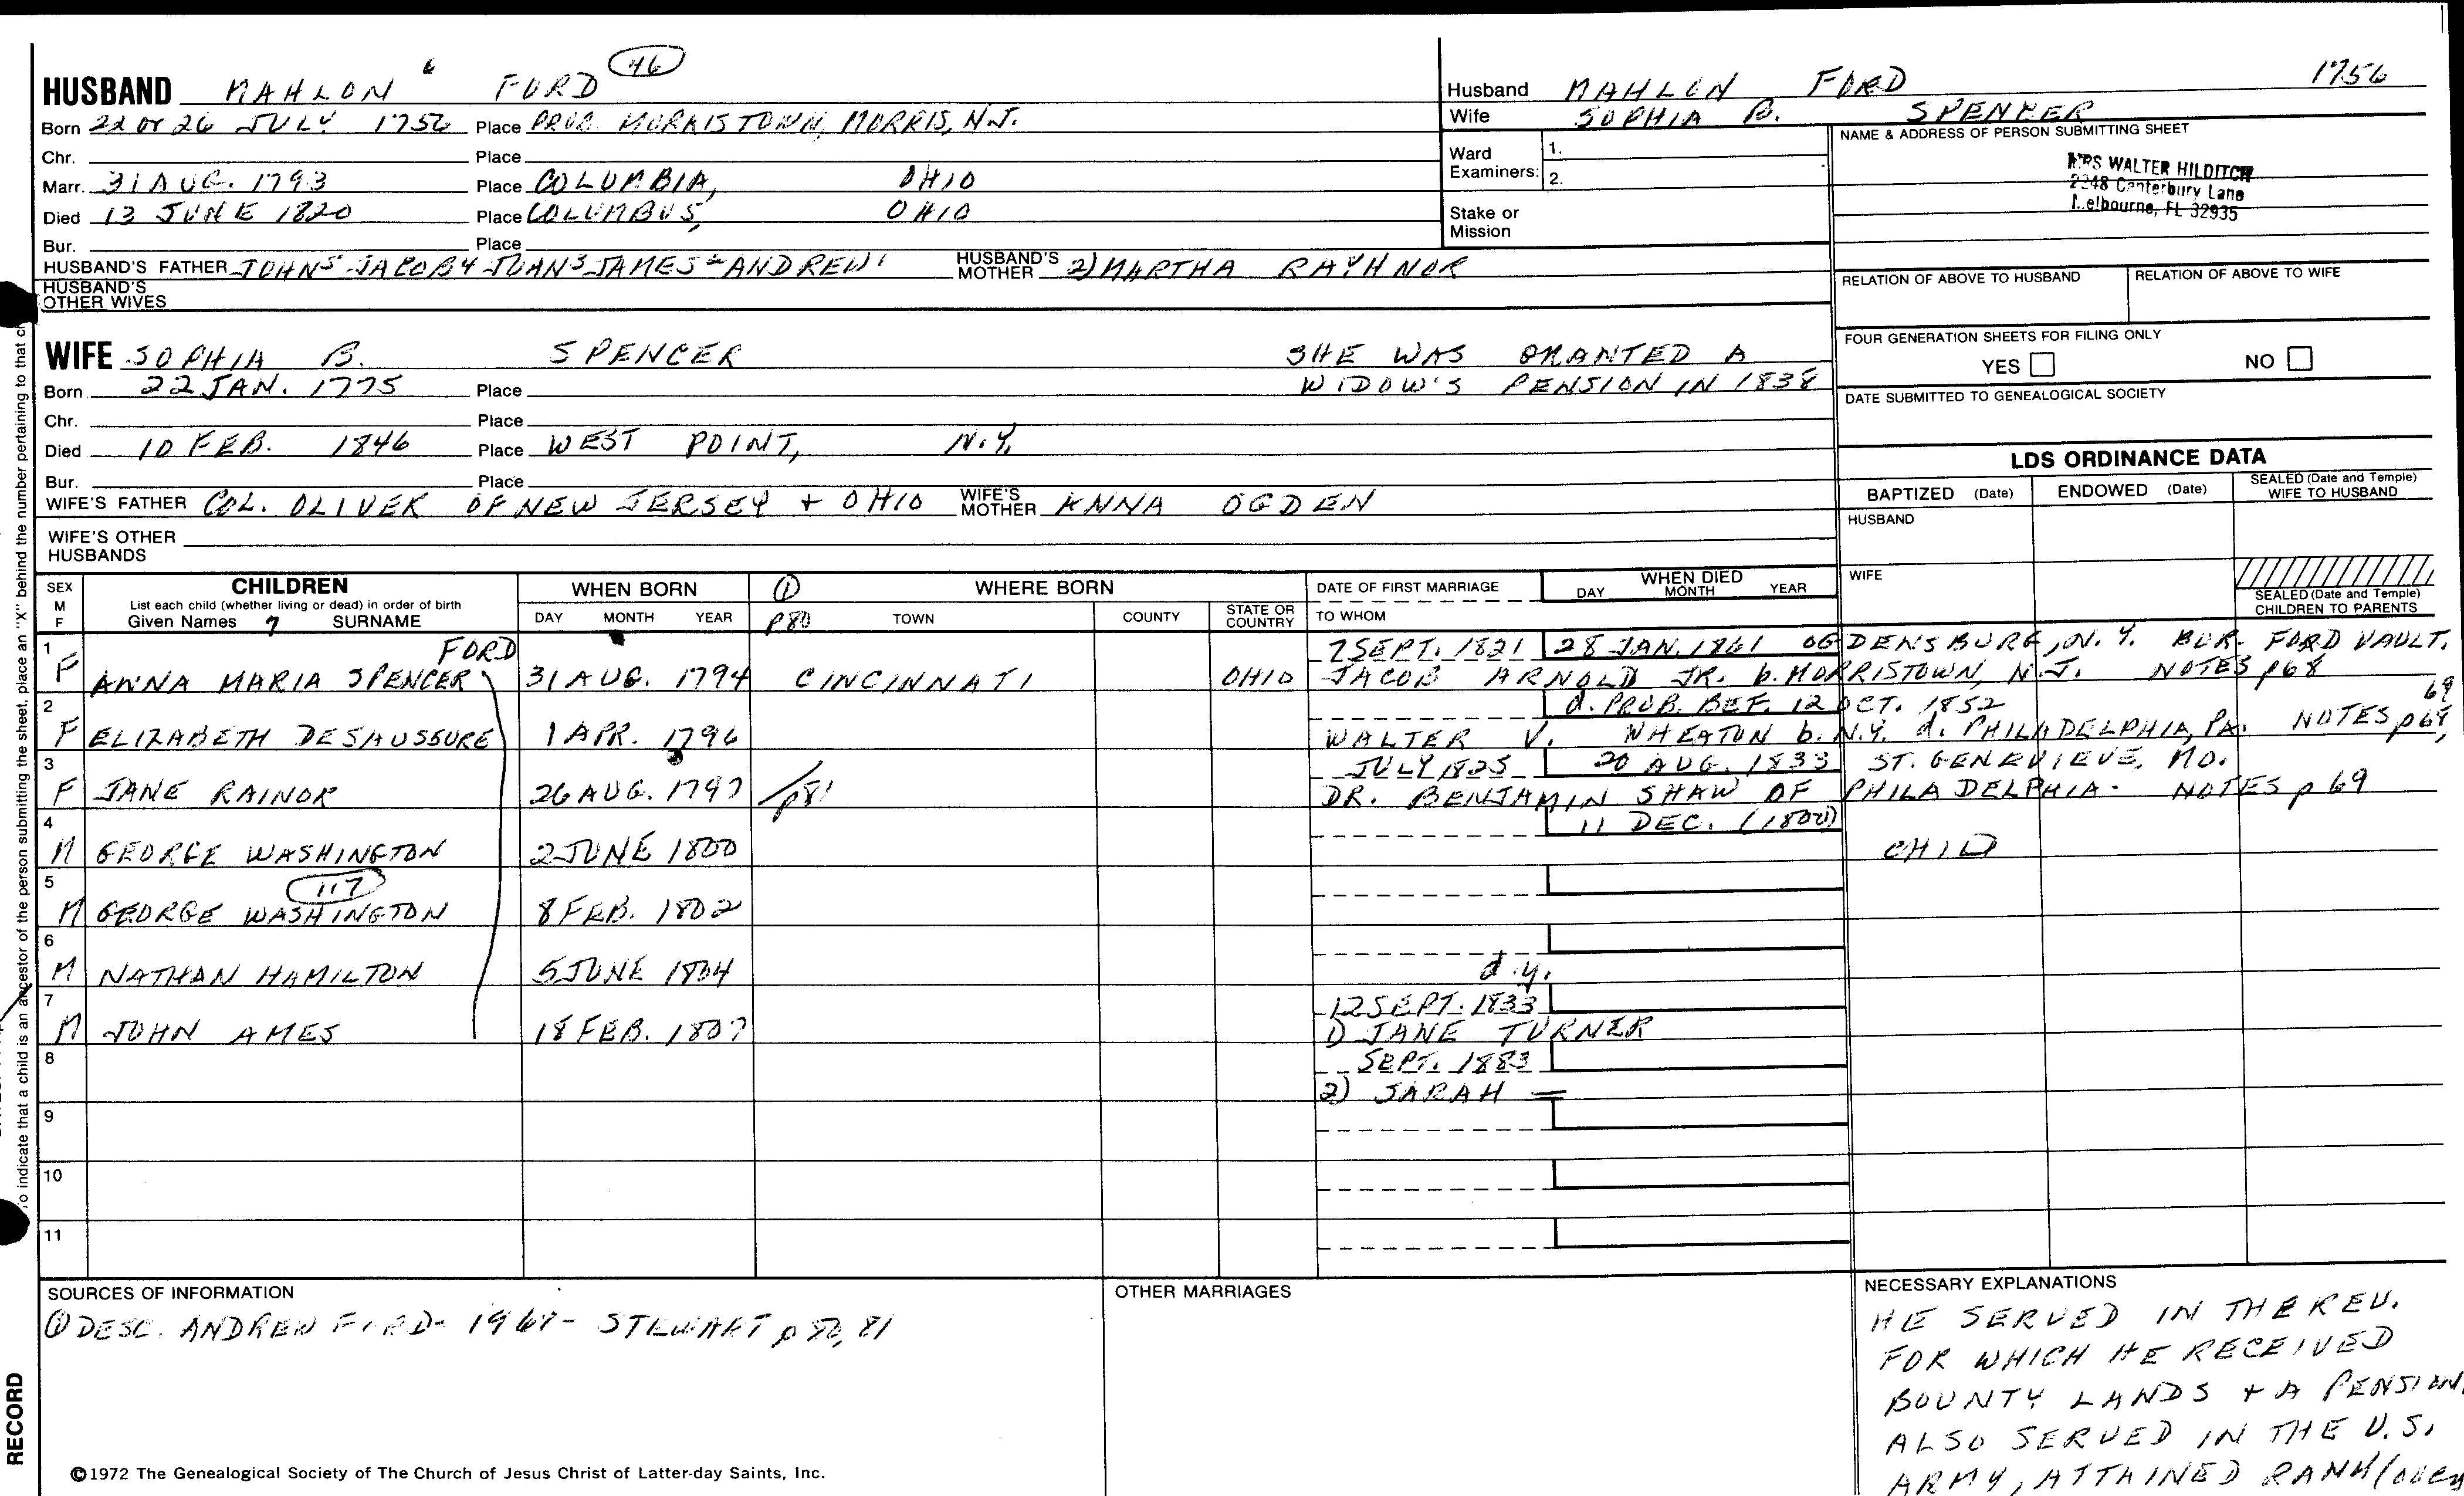 HUSBAND MAHLON 6 FORD 46
Born 22 or 26 JULY 1756 Place PROB. MORRISTOWN, MORRIS, N.J.
Chr. Place
Marr. 31 AUG. 1793 Place COLUMBIA, OHIO
Died 13 JUNE 1820 Place COLUMBUS, OHIO
Bur. Place
HUSBAND'S FATHER JOHN 5 JACOB 4 JOHN 3 JAMES 2 ANDREW 1 HUSBAND'S MOTHER 2) MARTHA RAYHNOR
HUSBAND'S OTHER WIVES
Husband MAHLON FORD 1756
Wife SOPHIA B. SPENCER
Ward Examiners: 1.
2.
Stake or Mission
NAME & ADDRESS OF PERSON SUBMITTING SHEET
MRS WALTER HILDITCH
2248 Canterbury Lane
Melbourne, FL 32935
RELATION OF ABOVE TO HUSBAND RELATION OF ABOVE TO WIFE
FOUR GENERATION SHEETS FOR FILING ONLY
YES NO
DATE SUBMITTED TO GENEALOGICAL SOCIETY
WIFE SOPHIA B. SPENCER SHE WAS GRANTED A
Born 22 JAN. 1775 Place WIDOW'S PENSION IN 1838
Chr. Place
Died 10 FEB. 1846 Place WEST POINT, N.Y.
Bur. Place
WIFE'S FATHER COL. OLIVER OF NEW JERSEY + OHIO WIFE'S MOTHER ANNA OGDEN
WIFE'S OTHER HUSBANDS
LDS ORDINANCE DATA
BAPTIZED (Date) ENDOWED (Date) SEALED (Date and Temple) WIFE TO HUSBAND
HUSBAND
WIFE
SEALED (Date and Temple) CHILDREN TO PARENTS
SEX M F
CHILDREN
List each child (whether living or dead) in order of birth
Given Names 7 SURNAME
WHEN BORN
DAY MONTH YEAR
① p80
WHERE BORN
TOWN COUNTY STATE OR COUNTRY
DATE OF FIRST MARRIAGE
TO WHOM
WHEN DIED
DAY MONTH YEAR
1 FORD 7 SEPT. 1821 28 JAN. 1861 OGDENSBURG, N.Y. BUR. FORD VAULT.
F ANNA MARIA SPENCER 31 AUG. 1794 CINCINNATI OHIO JACOB ARNOLD JR. b. MORRISTOWN, N.J. NOTES p68
2 d. PROB. BEF. 12 OCT. 1852 69
F ELIZABETH DESAUSSURE 1 APR. 1796 WALTER V. WHEATON b. N.Y. d. PHILADELPHIA, PA. NOTES p69,
3 JULY 1825 20 AUG. 1833 ST. GENEVIEVE, MO.
F JANE RAINOR 26 AUG. 1797 p81 DR. BENJAMIN SHAW OF PHILADELPHIA- NOTES p 69
4 11 DEC. (1800)
M GEORGE WASHINGTON 2 JUNE 1800 CHILD
5 117
M GEORGE WASHINGTON 8 FEB. 1802
6
M NATHAN HAMILTON 5 JUNE 1804 d.y.
7 12 SEPT. 1833
M JOHN AMES 18 FEB. 1807 1) JANE TURNER
8 SEPT. 1883
2) SARAH —
9
10
11
SOURCES OF INFORMATION
① DESC. ANDREW FORD- 1968- STEWART p 80, 81
OTHER MARRIAGES
NECESSARY EXPLANATIONS
HE SERVED IN THE REV.
FOR WHICH HE RECEIVED
BOUNTY LANDS + A PENSION.
ALSO SERVED IN THE U.S.
ARMY, ATTAINED RANK (over
©1972 The Genealogical Society of The Church of Jesus Christ of Latter-day Saints, Inc.
To indicate that a child is an ancestor of the person submitting the sheet, place an "X" behind the number pertaining to that
RECORD